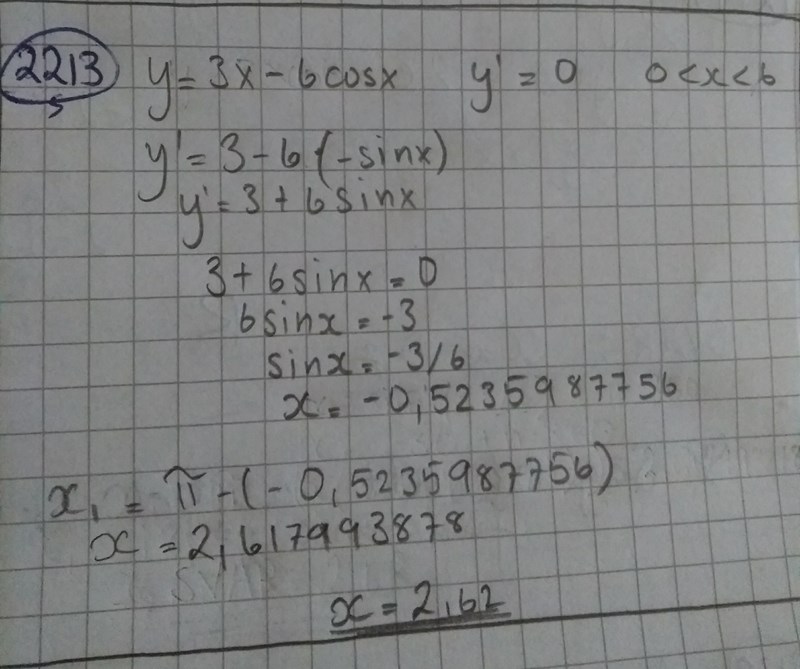 2213 y = 3x - 6cosx y' = 0 0 < x < 6
y' = 3 - 6 (-sinx)
y' = 3 + 6 sinx
3 + 6 sinx = 0
6 sinx = -3
sinx = -3/6
x = -0,5235987756
x₁ = π - (-0,5235987756)
x = 2,617993878
x = 2,62